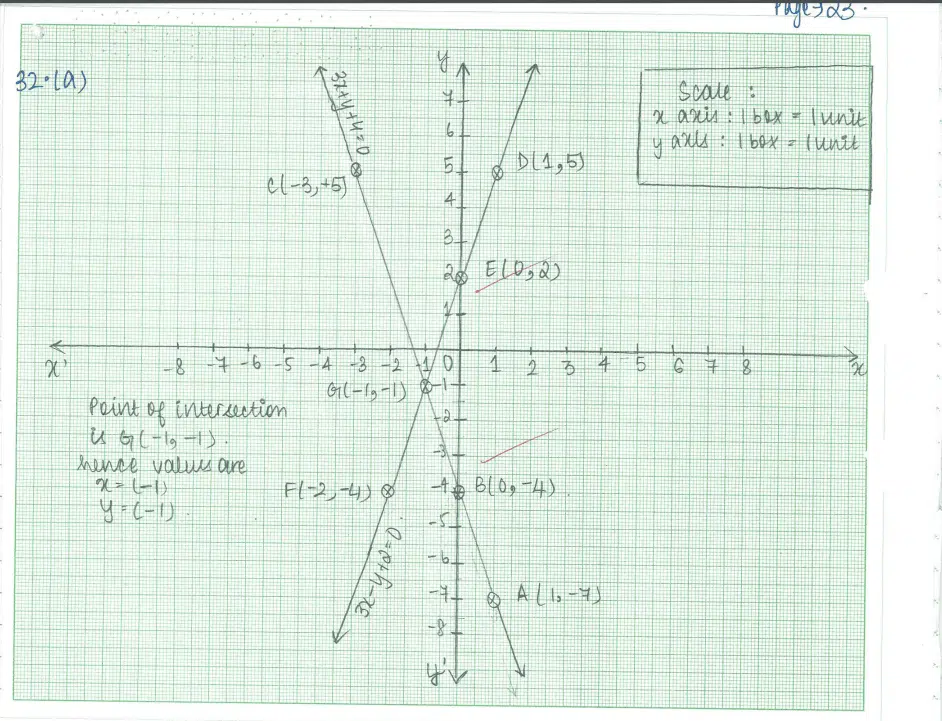 Page 323.
32.(a)
Scale :
x axis : 1 box = 1 unit
y axis : 1 box = 1 unit
3x+y+4=0
y
7
6
5
4
3
2
1
D(1,5)
C(-3,+5)
E(0,2)
x'
-8 -7 -6 -5 -4 -3 -2 -1 0 1 2 3 4 5 6 7 8
x
G(-1,-1)
-1
-2
-3
-4
-5
-6
-7
-8
y'
Point of intersection
is G(-1,-1).
hence values are
x=(-1)
y=(-1)
F(-2,-4)
B(0,-4).
3x-y+2=0.
A(1,-7)